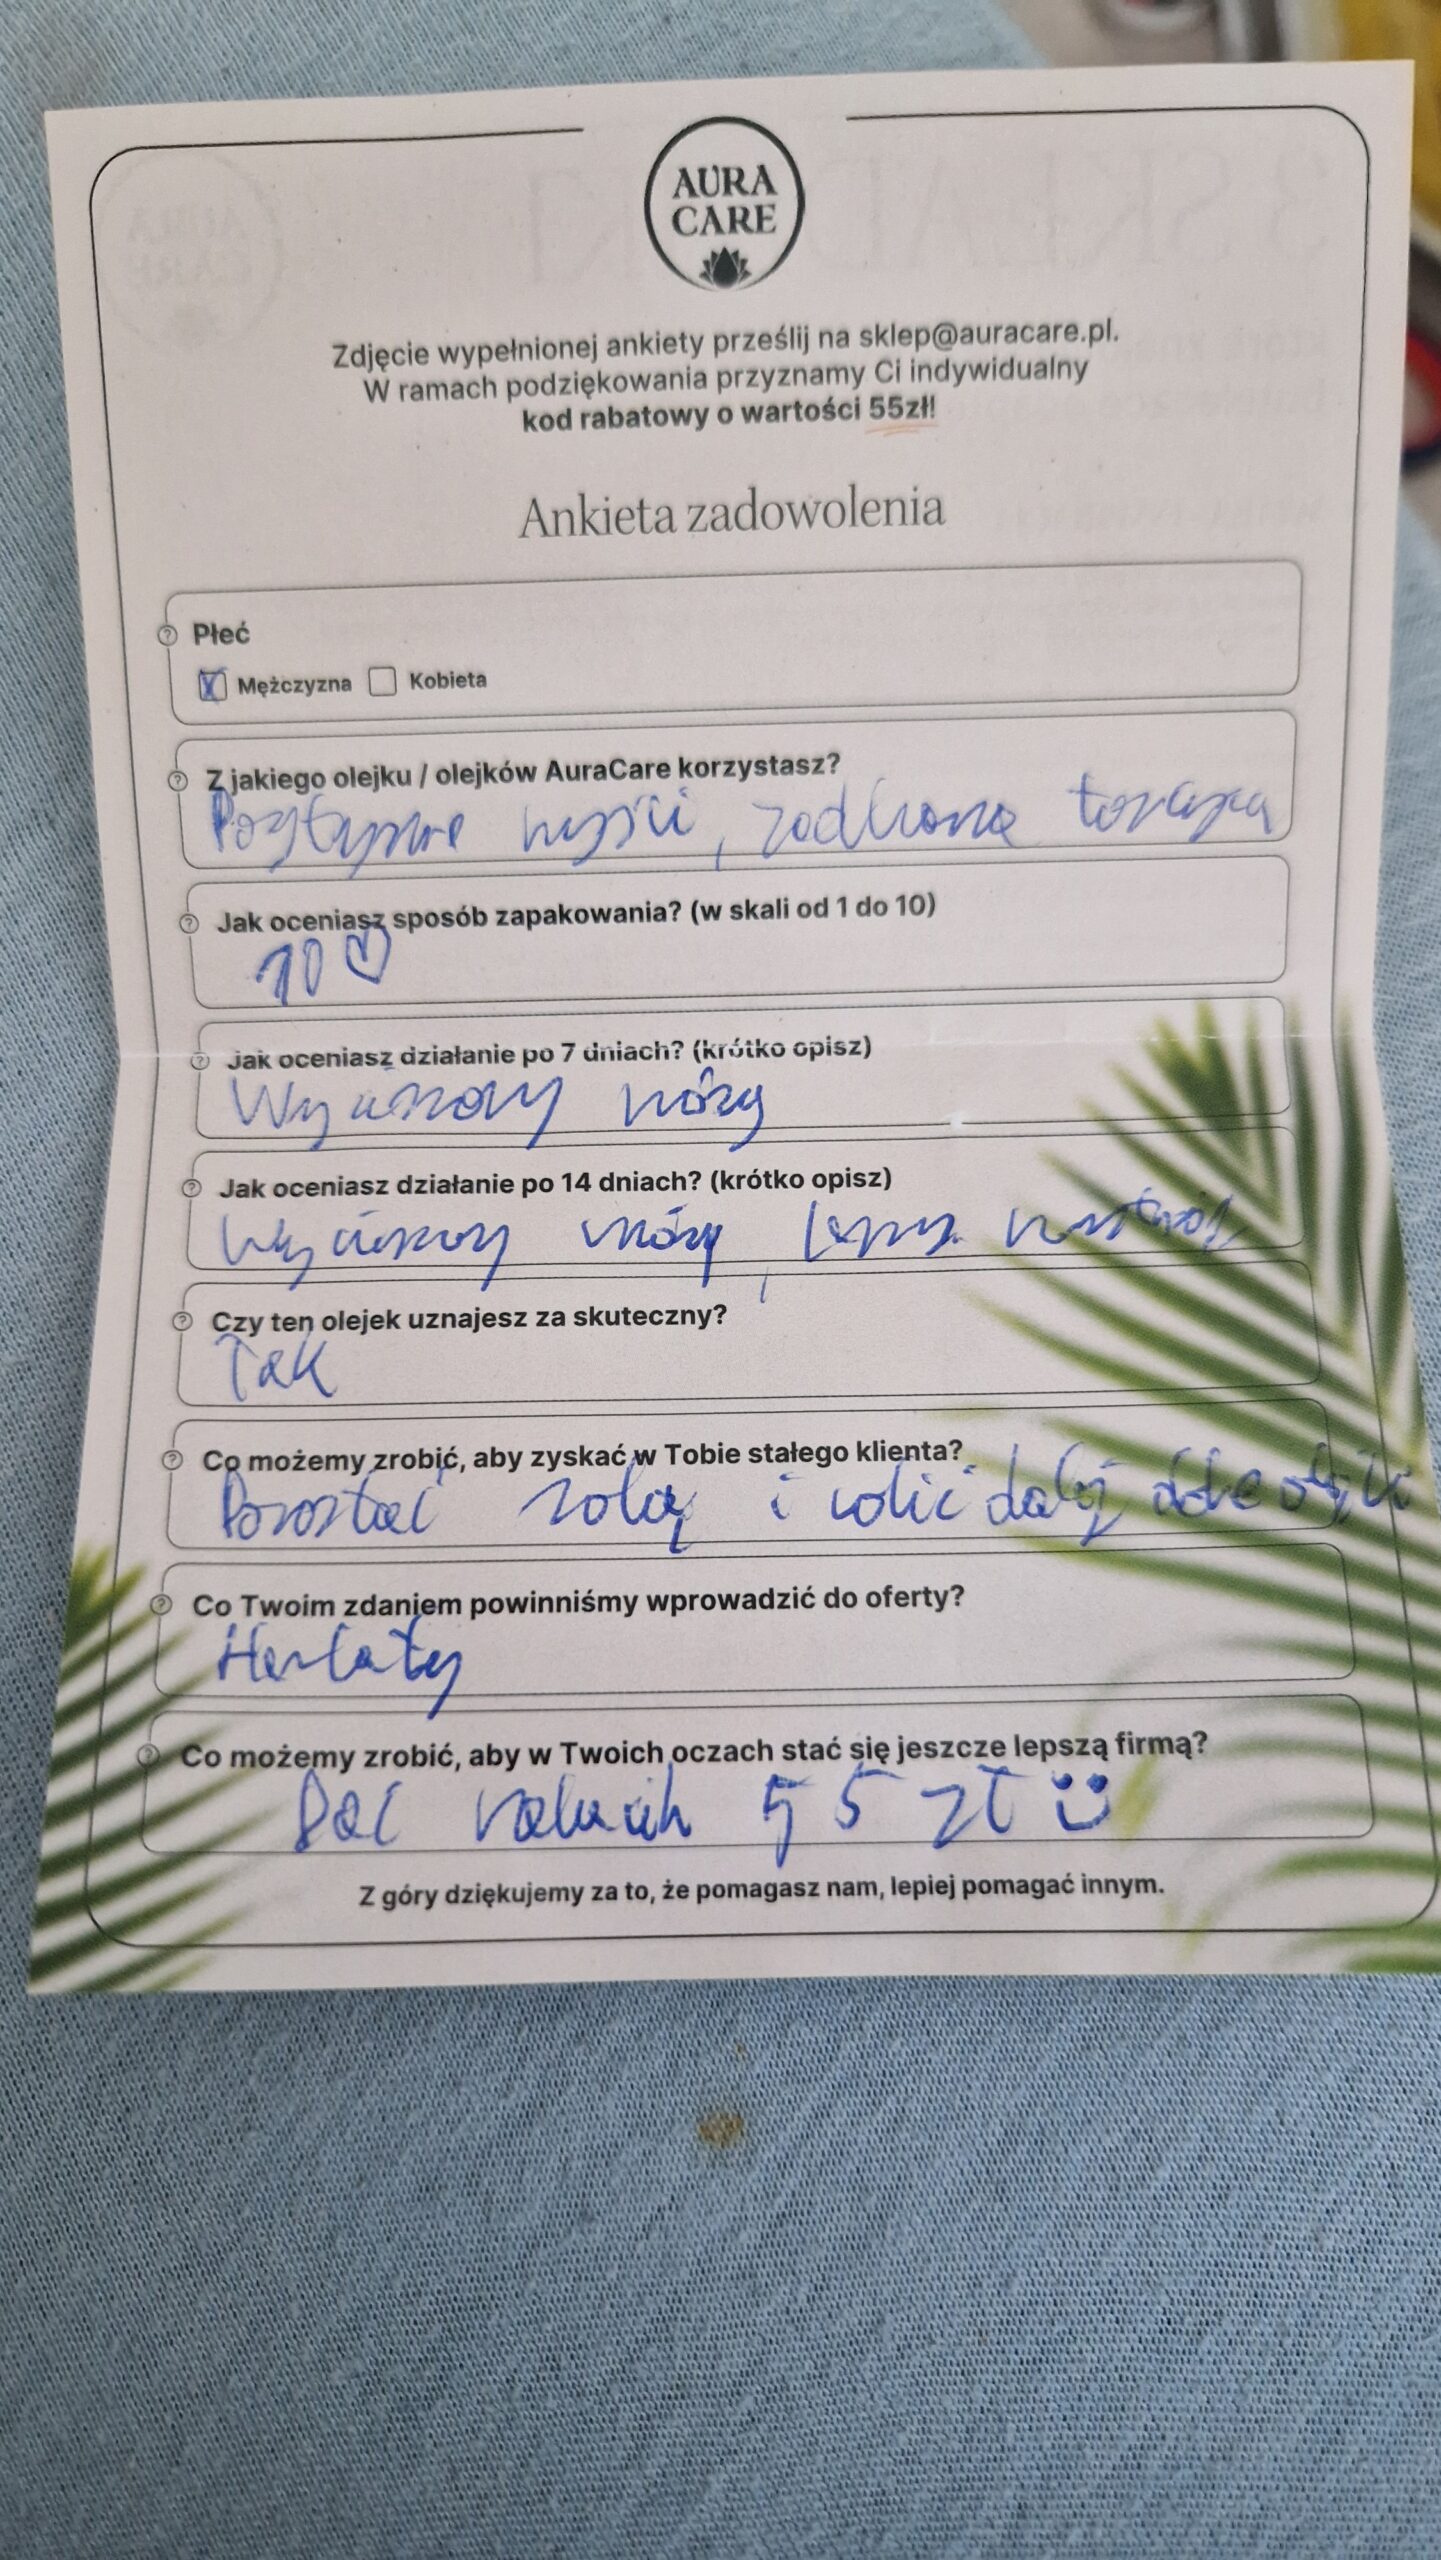 AURA
CARE
Zdjęcie wypełnionej ankiety prześlij na sklep@auracare.pl.
W ramach podziękowania przyznamy Ci indywidualny
kod rabatowy o wartości 55zł!
Ankieta zadowolenia
Płeć
Mężczyzna Kobieta
Z jakiego olejku / olejków AuraCare korzystasz?
Pozytywne myśli, zadbana
Jak oceniasz sposób zapakowania? (w skali od 1 do 10)
10
Jak oceniasz działanie po 7 dniach? (krótko opisz)
Wyciszony mózg
Jak oceniasz działanie po 14 dniach? (krótko opisz)
Wyciszony mózg, lepszy nastrój
Czy ten olejek uznajesz za skuteczny?
Tak
Co możemy zrobić, aby zyskać w Tobie stałego klienta?
Pozostać sobą i robić dalej dobre olejki
Co Twoim zdaniem powinniśmy wprowadzić do oferty?
Herbaty
Co możemy zrobić, aby w Twoich oczach stać się jeszcze lepszą firmą?
Dać 55 zł
Z góry dziękujemy za to, że pomagasz nam, lepiej pomagać innym.